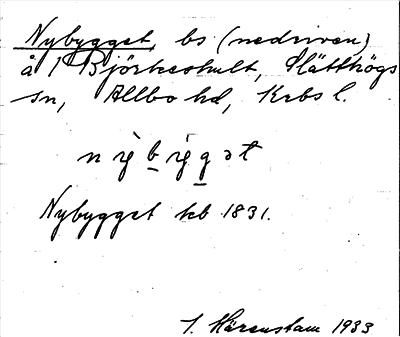 Nybygget, bs (nedriven)
å 1 Björkeshult, Slätthögs
sn, Allbo hd, Krbs l.
Nybygget kb 1831.
J. Härenstam 1933